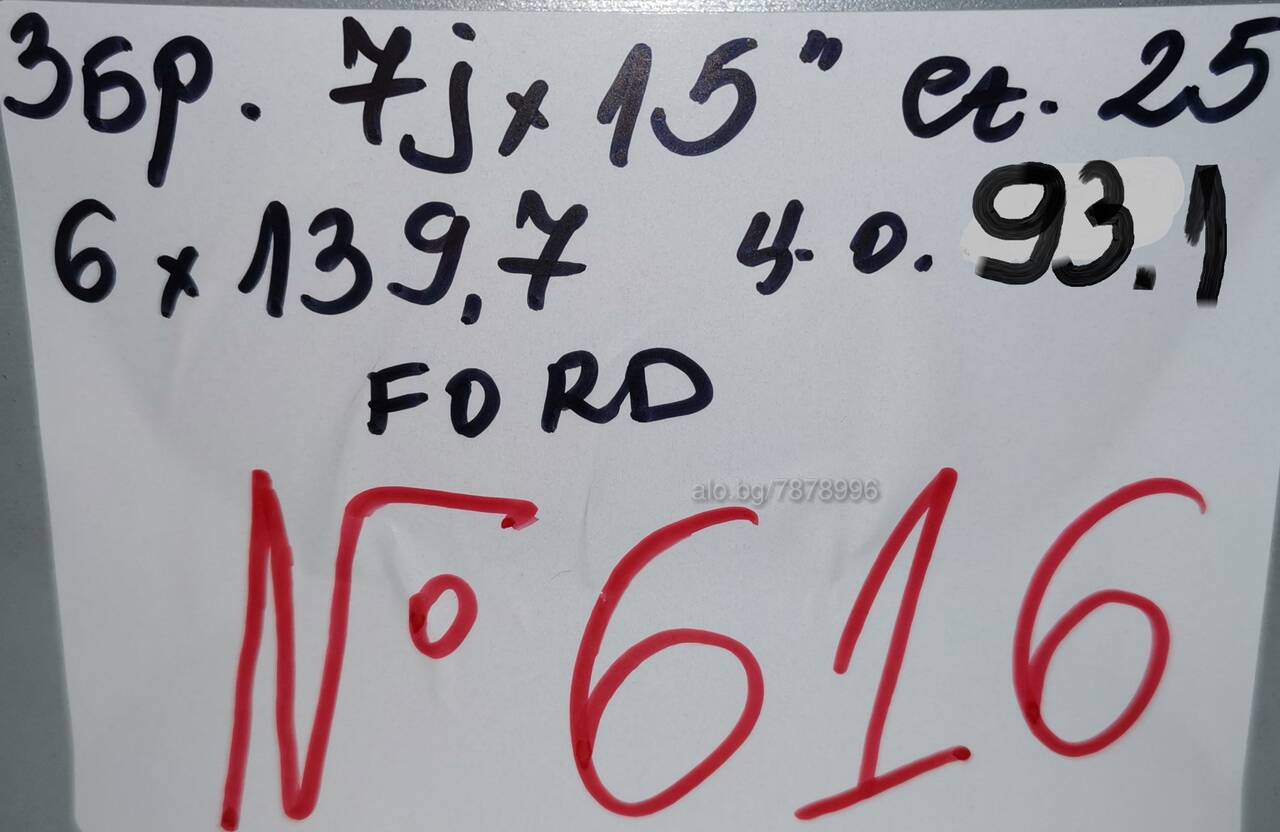 3бр. 7j x 15" et. 25
6 x 139,7 ц.о. 93.1
FORD
alo.bg/7878996
№ 616